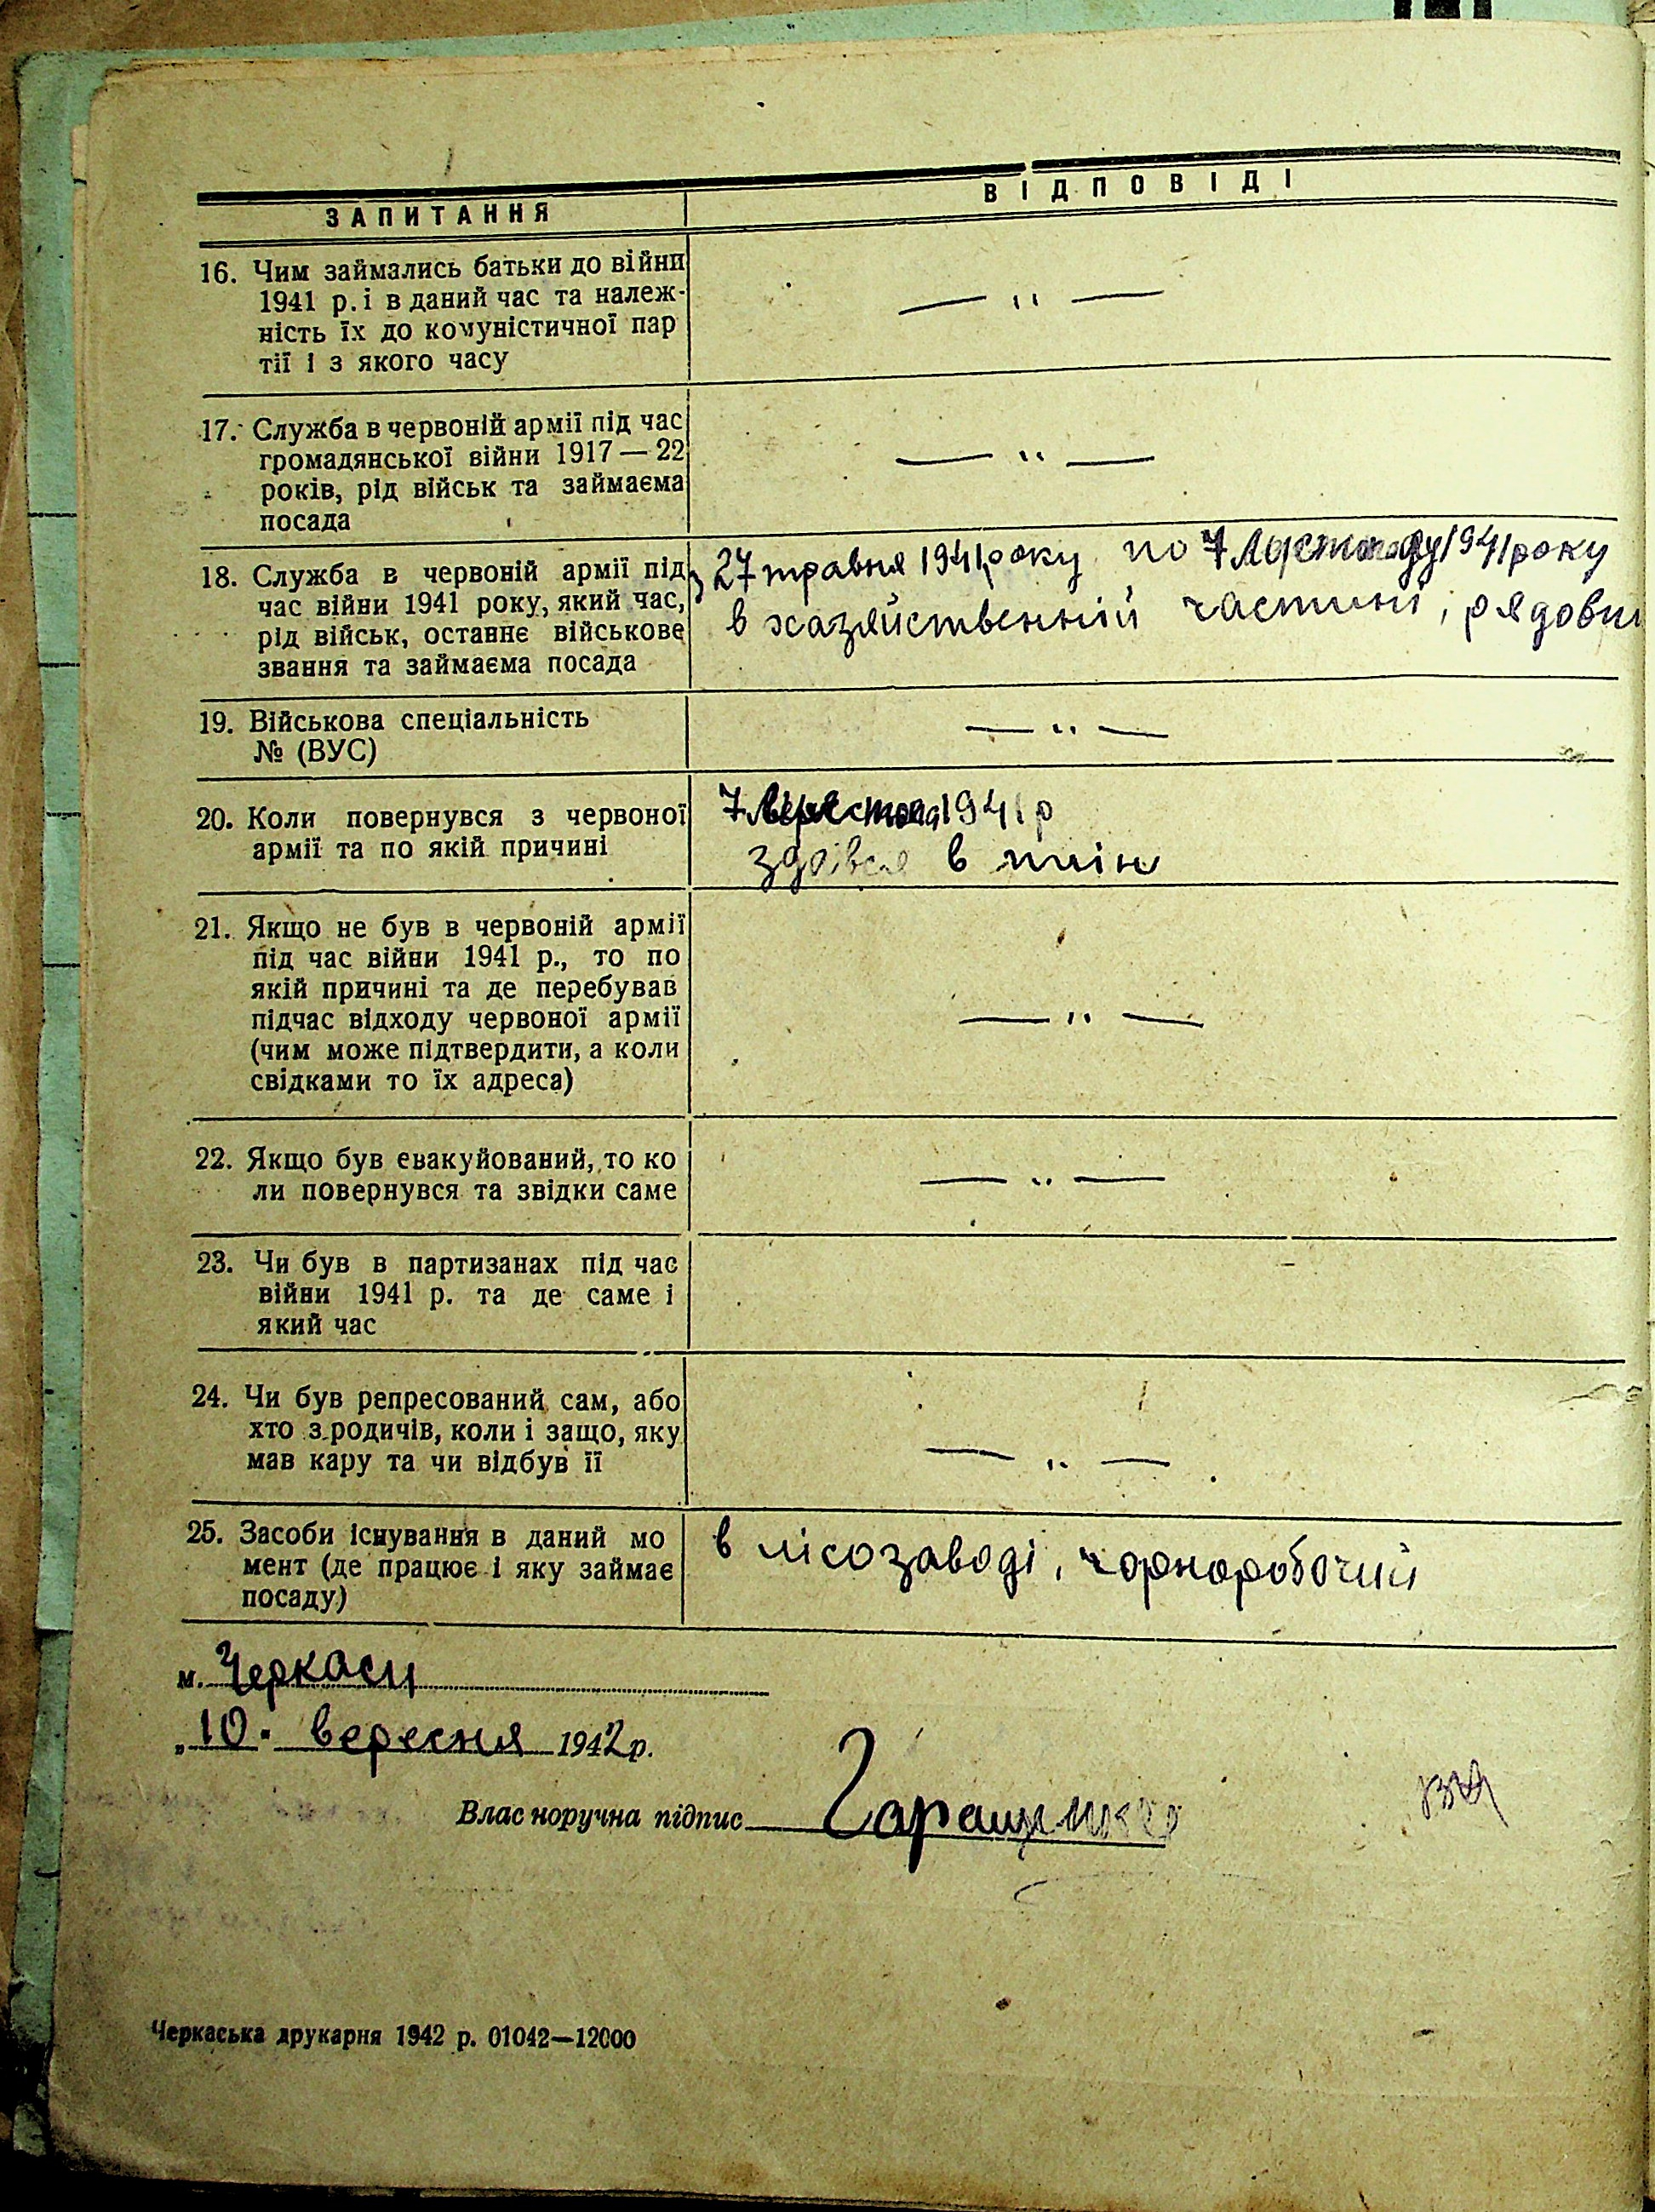 ЗАПИТАННЯ ВІДПОВІДІ
16. Чим займались батьки до війни
1941 р. і в даний час та належ-
ність їх до комуністичної пар
тії і з якого часу
— " —
17. Служба в червоній армії під час
громадянської війни 1917 — 22
років, рід військ та займаєма
посада
— " —
18. Служба в червоній армії під
час війни 1941 року, який час,
рід військ, останнє військове
звання та займаєма посада
з 27 травня 1941 року по 7 Листопаду 1941 року
в хазяйственній частині, рядовий
19. Військова спеціальність
№ (ВУС)
— " —
20. Коли повернувся з червоної
армії та по якій причині
7 1941 р
здався в плін
21. Якщо не був в червоній армії
під час війни 1941 р., то по
якій причині та де перебував
підчас відходу червоної армії
(чим може підтвердити, а коли
свідками то їх адреса)
— " —
22. Якщо був евакуйований, то ко
ли повернувся та звідки саме
— " —
23. Чи був в партизанах під час
війни 1941 р. та де саме і
який час
24. Чи був репресований сам, або
хто з родичів, коли і защо, яку
мав кару та чи відбув її
— " —
25. Засоби існування в даний мо
мент (де працює і яку займає
посаду)
в лісозаводі, чорноробочий
м. Черкаси
„10" вересня 1942 р.
Власноручна підпис Гаращенко
Черкаська друкарня 1942 р. 01042—12000